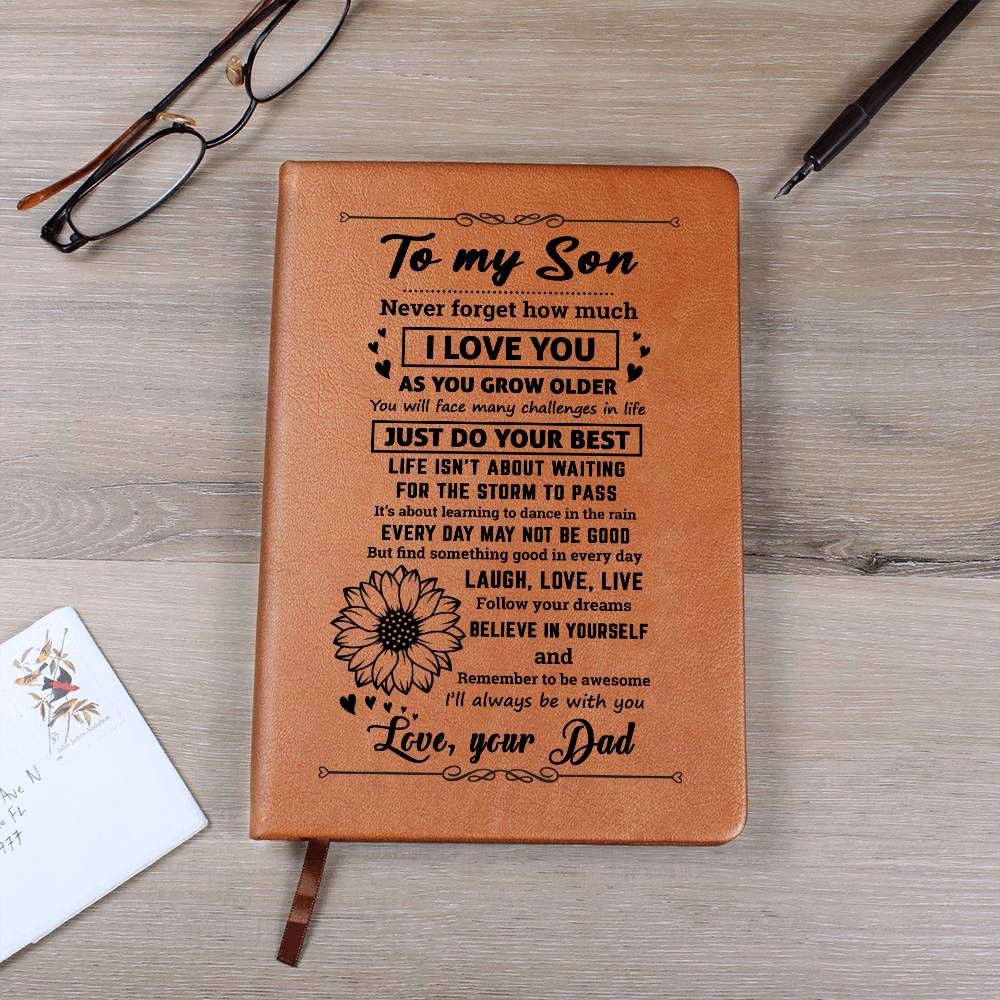 To my Son
Never forget how much
I LOVE YOU
AS YOU GROW OLDER
You will face many challenges in life
JUST DO YOUR BEST
LIFE ISN'T ABOUT WAITING
FOR THE STORM TO PASS
It's about learning to dance in the rain
EVERY DAY MAY NOT BE GOOD
But find something good in every day
LAUGH, LOVE, LIVE
Follow your dreams
BELIEVE IN YOURSELF
and
Remember to be awesome
I'll always be with you
Love, your Dad
37
John James Audubon
Ave N
FL
977